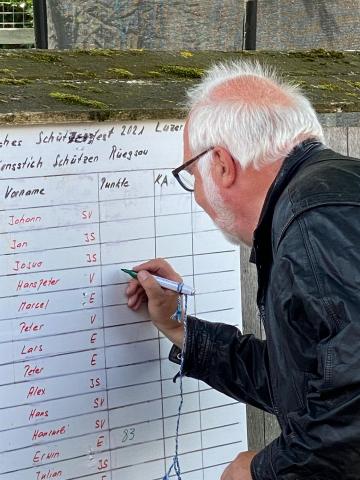 ches Schützenfest 2021 Luzer
ionsstich Schützen Rüegsau
Vorname Punkte KA
Johann SV
Jan JS
Josua JS
Hanspeter V
Marcel E
Peter V
Lars E
Peter E
Alex JS
Hans SV
Hansueli SV
Erwin E 83
Julian JS
E